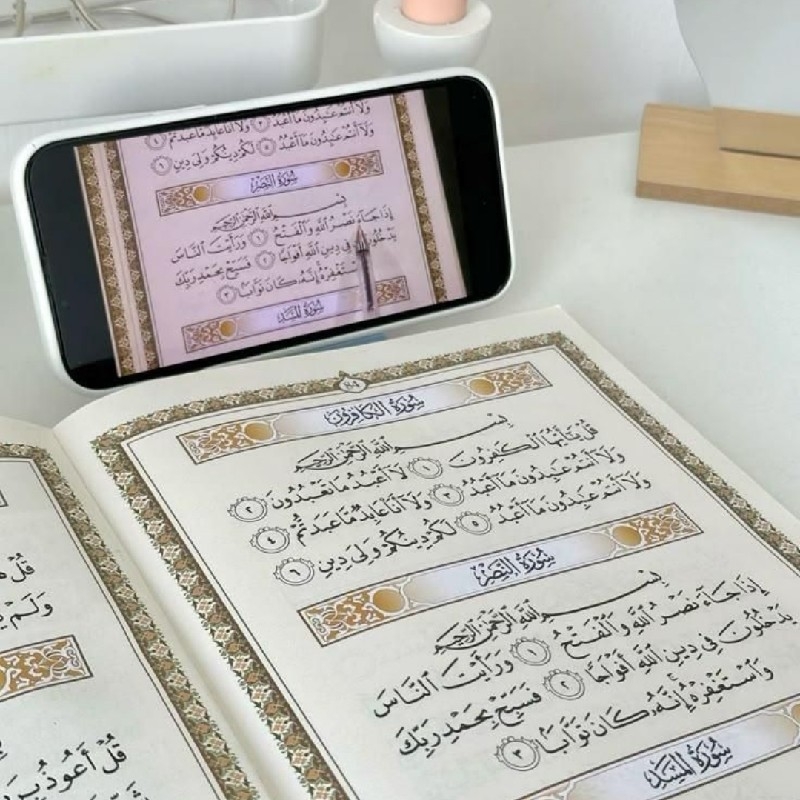 وَلَا أَنتُمْ عَٰبِدُونَ مَا أَعْبُدُ ٣ وَلَا أَنَا۠ عَابِدٌ مَّا عَبَدتُّمْ ٤
وَلَا أَنتُمْ عَٰبِدُونَ مَا أَعْبُدُ ٥ لَكُمْ دِينُكُمْ وَلِيَ دِينِ ٦
سُورَةُ النَّصْرِ
بِسْمِ اللَّهِ الرَّحْمَٰنِ الرَّحِيمِ
إِذَا جَاءَ نَصْرُ اللَّهِ وَالْفَتْحُ ١ وَرَأَيْتَ النَّاسَ
يَدْخُلُونَ فِي دِينِ اللَّهِ أَفْوَاجًا ٢ فَسَبِّحْ بِحَمْدِ رَبِّكَ
إِنَّهُ كَانَ تَوَّابًا ٣
سُورَةُ الْمَسَدِ
سُورَةُ الْكَافِرُونَ
بِسْمِ اللَّهِ الرَّحْمَٰنِ الرَّحِيمِ
قُلْ يَٰأَيُّهَا الْكَٰفِرُونَ ١ لَا أَعْبُدُ مَا تَعْبُدُونَ ٢
وَلَا أَنتُمْ عَٰبِدُونَ مَا أَعْبُدُ ٣ وَلَا أَنَا۠ عَابِدٌ مَّا عَبَدتُّمْ ٤
وَلَا أَنتُمْ عَٰبِدُونَ مَا أَعْبُدُ ٥ لَكُمْ دِينُكُمْ وَلِيَ دِينِ ٦
سُورَةُ النَّصْرِ
بِسْمِ اللَّهِ الرَّحْمَٰنِ الرَّحِيمِ
إِذَا جَاءَ نَصْرُ اللَّهِ وَالْفَتْحُ ١ وَرَأَيْتَ النَّاسَ
يَدْخُلُونَ فِي دِينِ اللَّهِ أَفْوَاجًا ٢ فَسَبِّحْ بِحَمْدِ رَبِّكَ
وَاسْتَغْفِرْهُ إِنَّهُ كَانَ تَوَّابًا ٣
سُورَةُ الْمَسَدِ
قُلْ
وَلَمْ
قُلْ أَعُوذُ بِرَبِّ